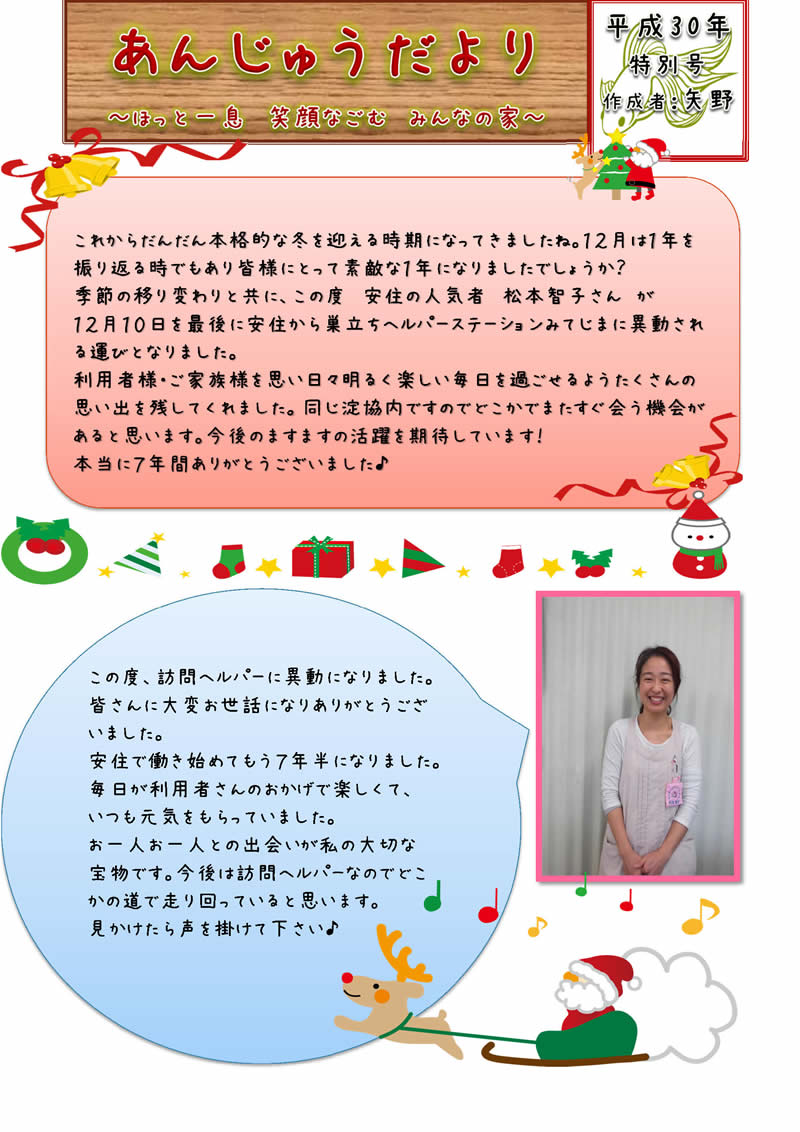 あんじゅうだより
～ほっと一息　笑顔なごむ　みんなの家～
平成30年
特別号
作成者：矢野
これからだんだん本格的な冬を迎える時期になってきましたね。12月は1年を
振り返る時でもあり皆様にとって素敵な1年になりましたでしょうか？
季節の移り変わりと共に、この度　安住の人気者　松本智子さん　が
12月10日を最後に安住から巣立ちヘルパーステーションみてじまに異動され
る運びとなりました。
利用者様・ご家族様を思い日々明るく楽しい毎日を過ごせるようたくさんの
思い出を残してくれました。同じ淀協内ですのでどこかでまたすぐ会う機会が
あると思います。今後のますますの活躍を期待しています！
本当に7年間ありがとうございました♪
この度、訪問ヘルパーに異動になりました。
皆さんに大変お世話になりありがとうござ
いました。
安住で働き始めてもう7年半になりました。
毎日が利用者さんのおかげで楽しくて、
いつも元気をもらっていました。
お一人お一人との出会いが私の大切な
宝物です。今後は訪問ヘルパーなのでどこ
かの道で走り回っていると思います。
見かけたら声を掛けて下さい♪